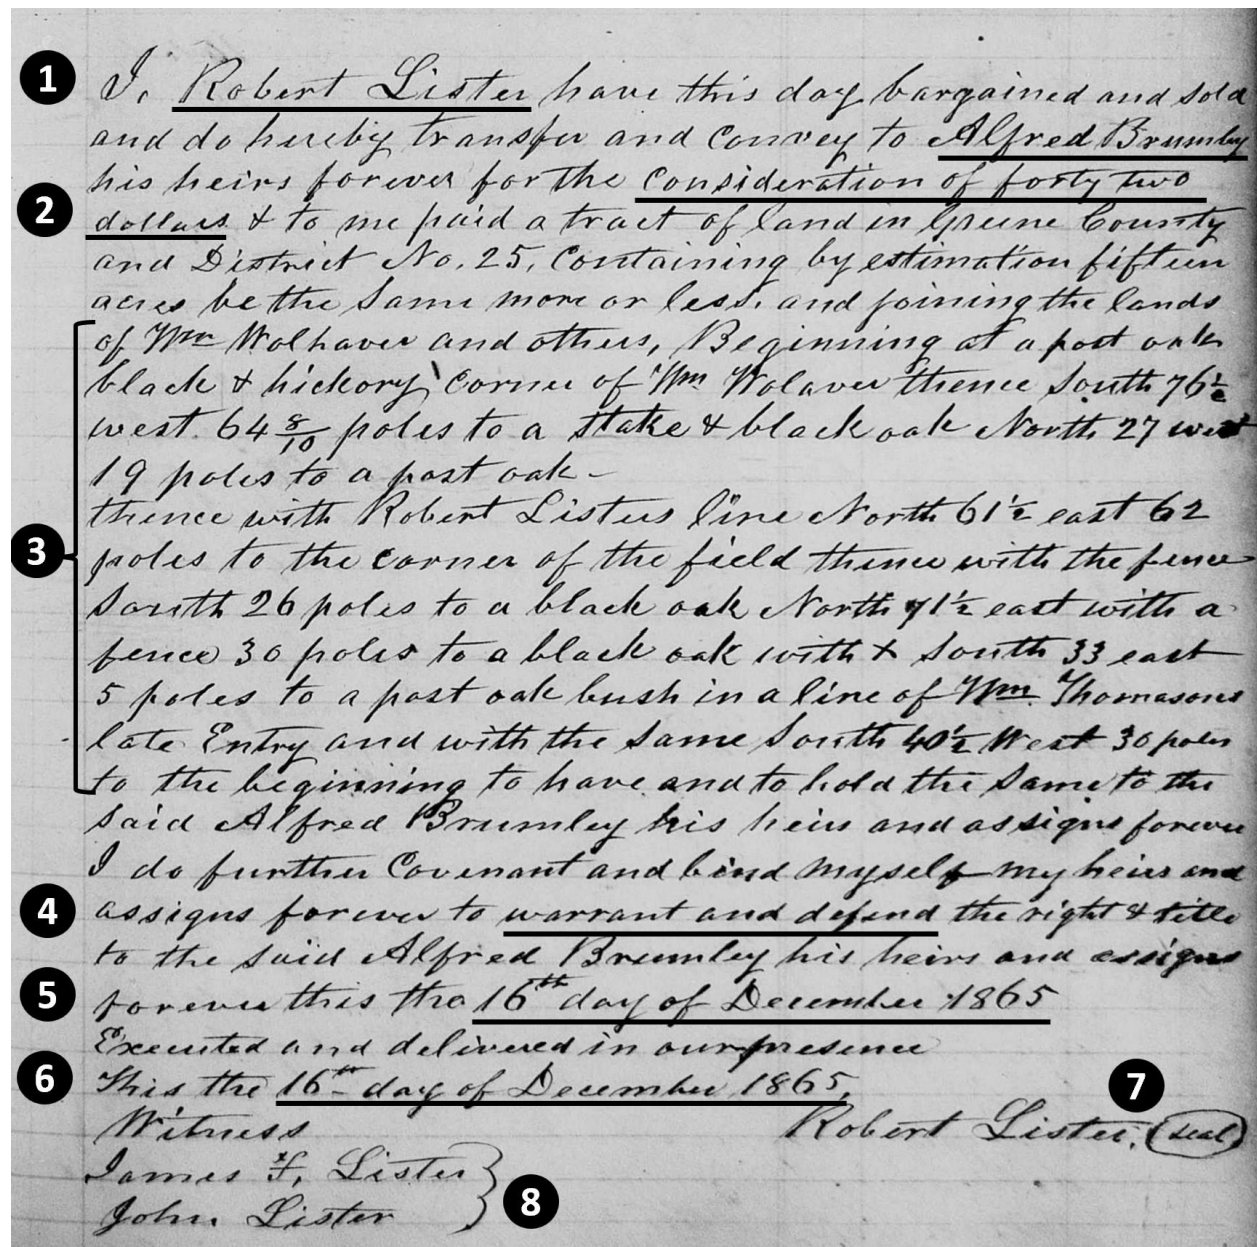 1 I, Robert Lister have this day bargained and sold
and do hereby transfer and convey to Alfred Brumley
his heirs forever for the consideration of forty two
2 dollars & to me paid a tract of land in Greene County
and District No. 25, Containing by estimation fifteen
acres be the same more or less, and joining the lands
of Wm Wolhaver and others, Beginning at a post oak
black & hickory corner of Wm Wolaver thence South 76½
west 64 8/10 poles to a stake & black oak North 27 west
19 poles to a post oak -
thence with Robert Listers line North 61½ east 62
3 poles to the corner of the field thence with the fence
South 26 poles to a black oak North 71½ east with a
fence 30 poles to a black oak with x South 33 east
5 poles to a post oak bush in a line of Wm. Thomasons
late Entry and with the same South 40½ West 30 poles
to the beginning to have and to hold the same to the
said Alfred Brumley his heirs and assigns forever
I do further Covenant and bind myself my heirs and
4 assigns forever to warrant and defend the right & title
to the said Alfred Brumley his heirs and assigns
5 forever this the 16th day of December 1865
Executed and delivered in our presence
6 This the 16th day of December 1865,
7
Witness Robert Lister. (seal)
James F. Lister
8
John Lister